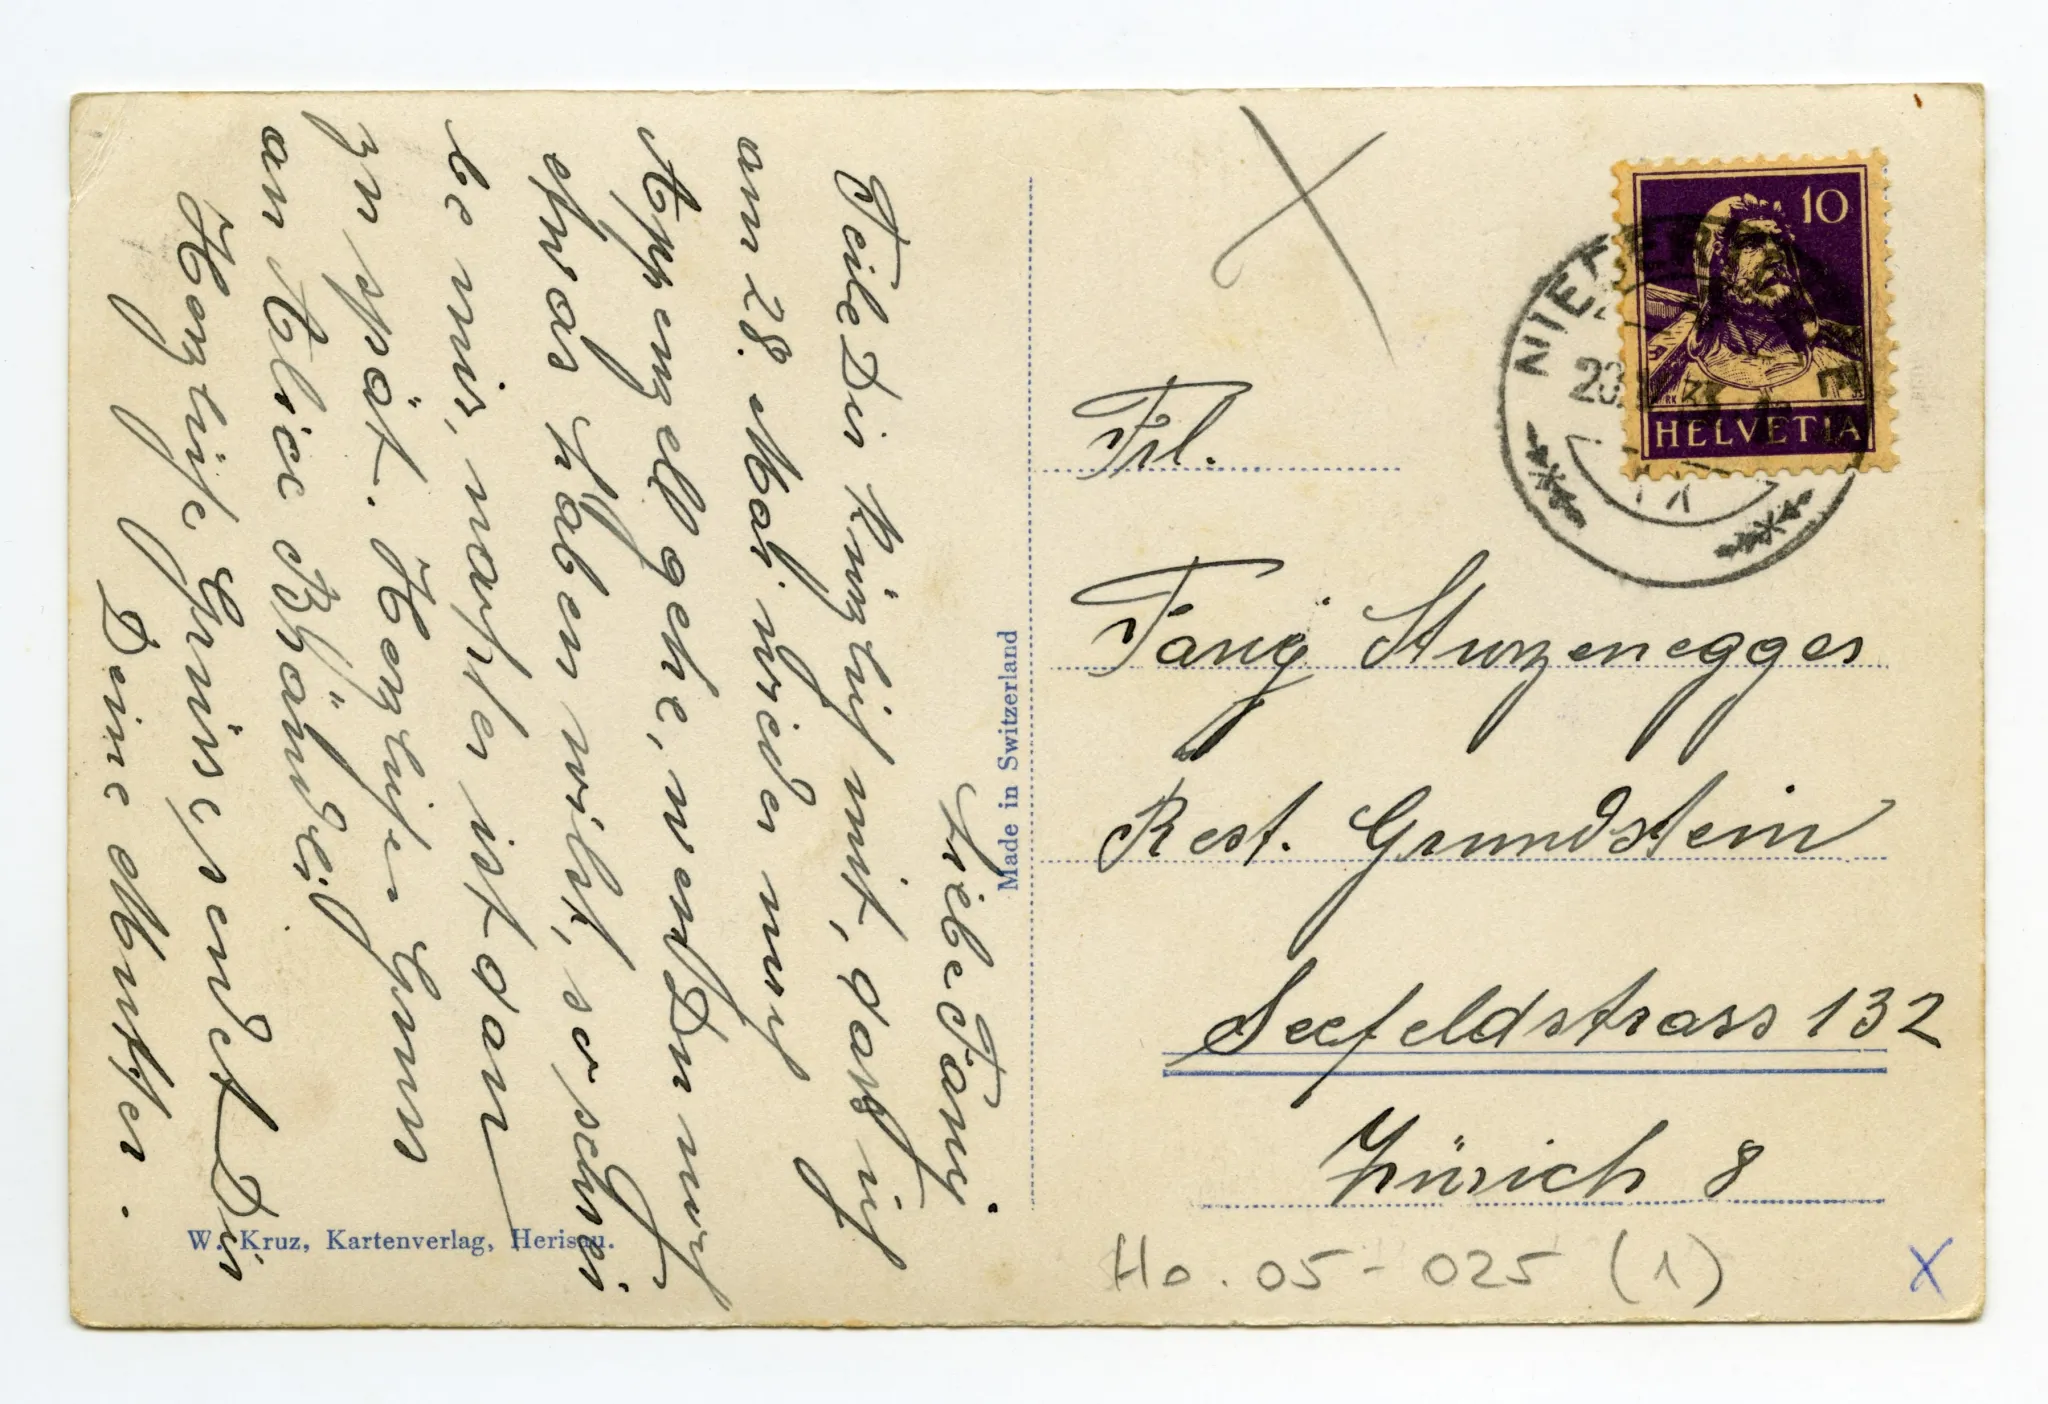 Liebe Fany.
Teile Dir kürzlich mit, dass ich
am 28. Mai wieder nach
Appenzell gehe, wen Du noch
etwas haben willst, so schrei
be mir, nachher ist dan
zu spät. Herzliche Gruss
an Alice
Herzliche Grüsse, sendet Dir
Deine Mutter.
W. Kruz, Kartenverlag, Herisau.
Made in Switzerland
10
HELVETIA
Frl.
Fany Sturzenegger
Rest. Grundstein
Seefeldstrass 132
Zürich 8
Ho. 05-025 (1)
X